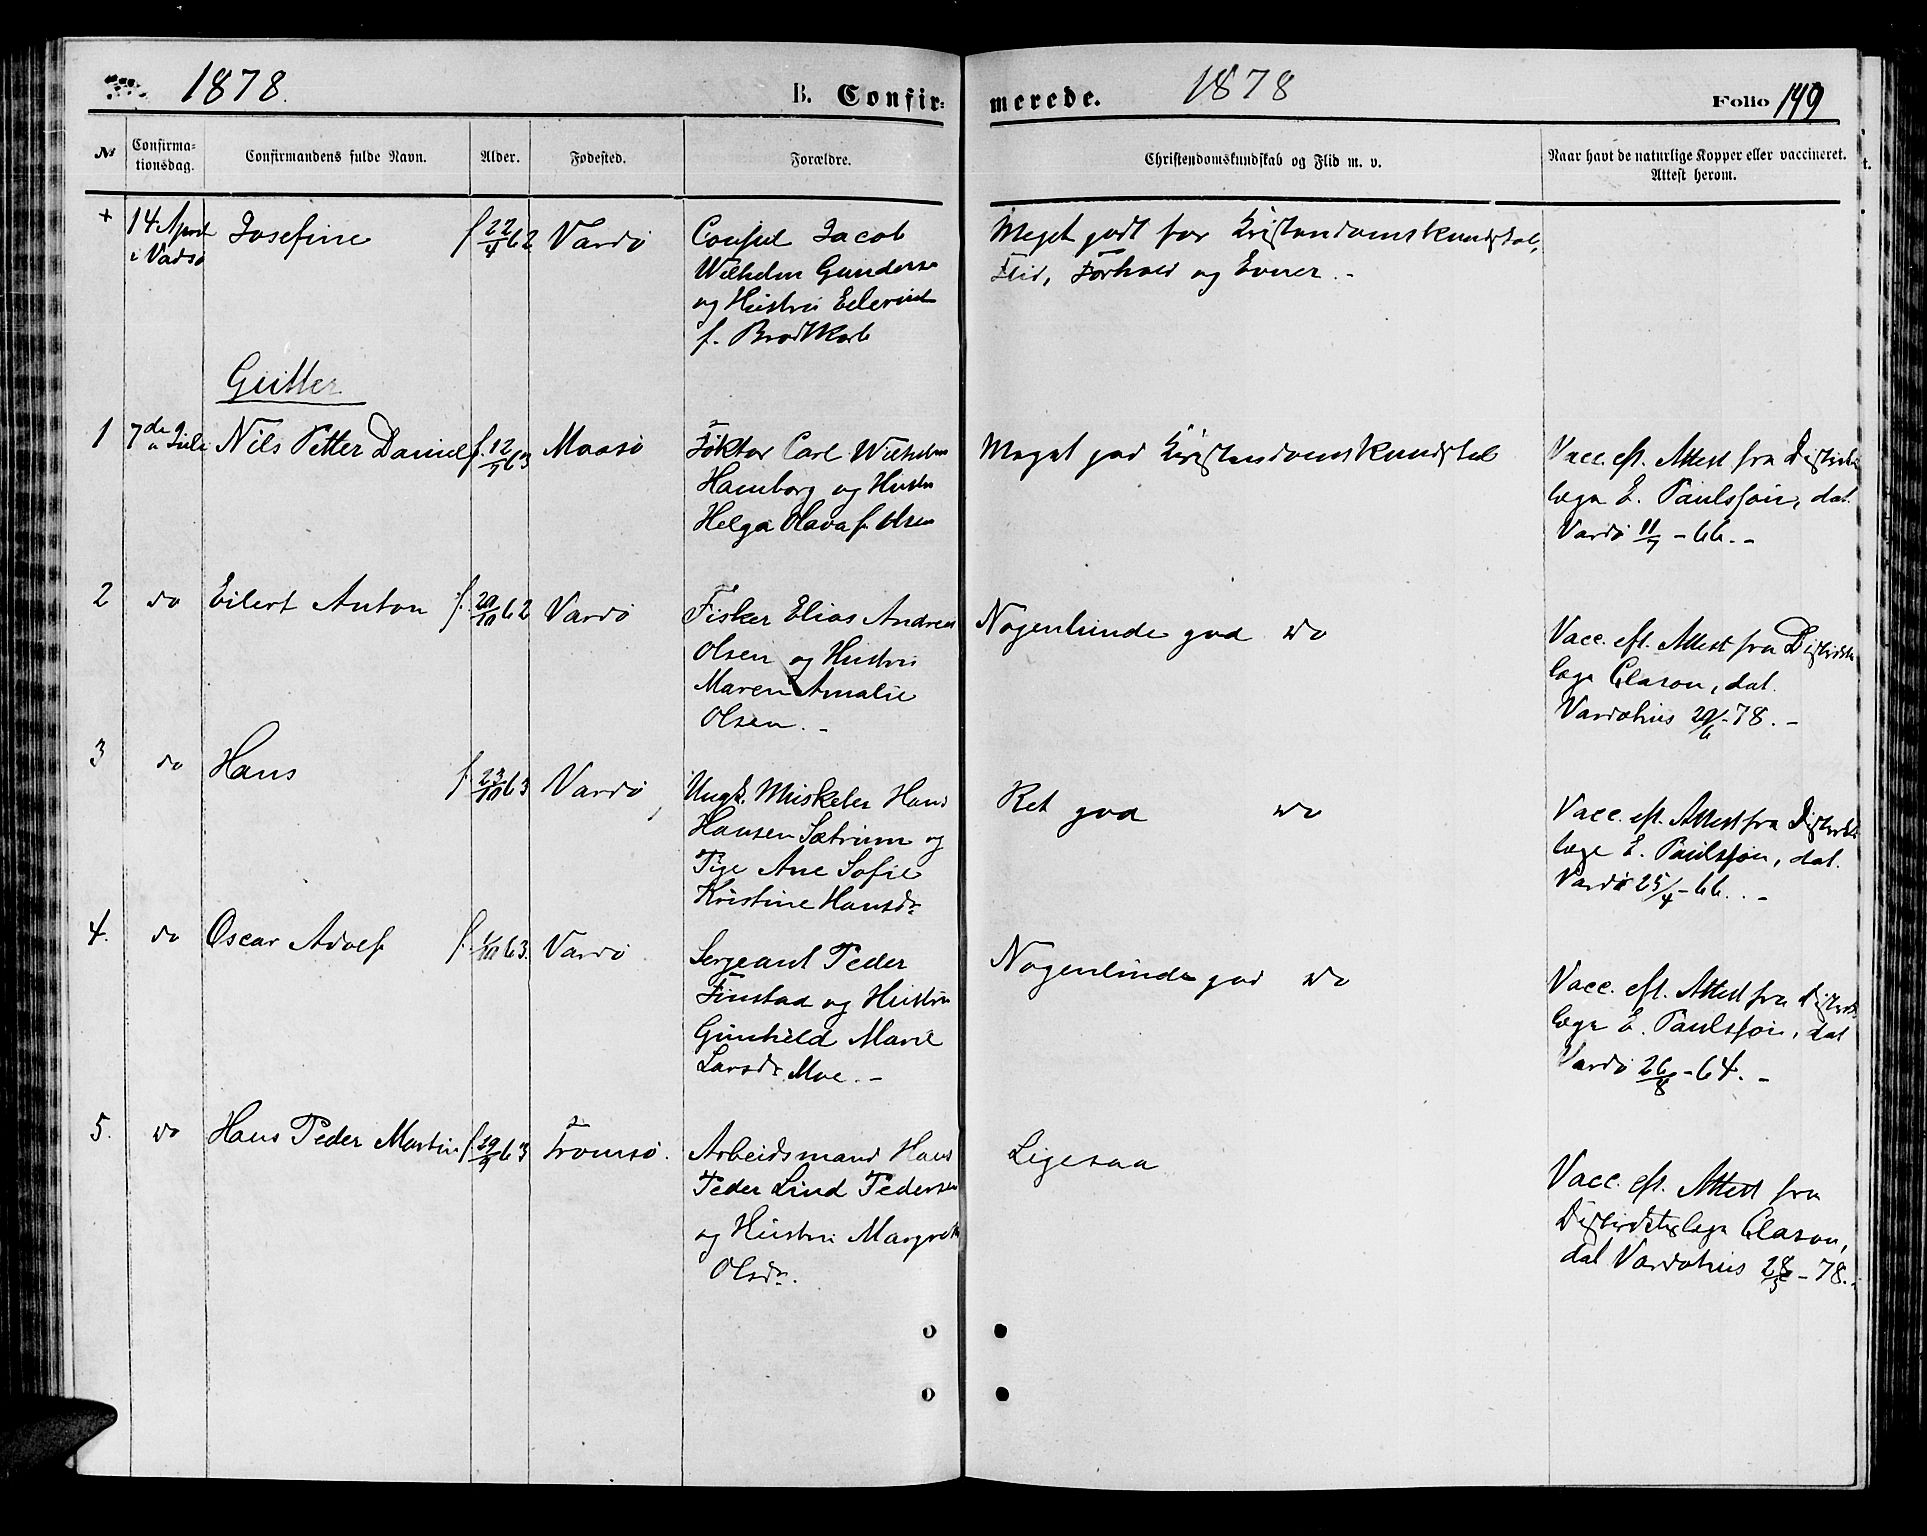 1878.
B. Confir=
merede.
1878
Folio 149
№
Confirma-
tionsdag.
Confirmandens fulde Navn.
Alder.
Fødested.
Forældre.
Christendomskundskab og Flid m. v.
Naar havt de naturlige Kopper eller vaccineret.
Attest herom.
+
14 April
i Vadsø
Josefine
f. 22/4 62
Vardø
Consul Jacob
Wilhelm Gunderse
og Hustru
f. Brodtkorb
Meget godt for Kristendomskundskab,
Flid, Forhold og Evner. -
Gutter
1
7de Juli
Nils Petter Daniel
f. 12/1 63
Maasø
Carl Wilhelm
Hamborg og Hustru
Helga Olava f. Olsen
Meget god Kristendomskundskab
Vacc. eft. Attest fra Distrikts
læge E. Paulssøn, dat.
Vardø 11/7 - 66. -
2
do
Eilert Anton
f. 20/10 62
Vardø
Fisker Elias Andreas
Olsen og Hustru
Maren Amalie
Olsen. -
Nogenlunde god do
Vacc. eft. Attest fra Distrikts
læge Clason, dat.
Vardøhus 29/6 - 78. -
3
do
Hans
f. 23/10 63
Vardø
Ungk. Musketer Hans
Hansen Sætrum og
Pige Ane Sofie
Kristine Hansdr.
Ret god do
Vacc. eft. Attest fra Distrikts
læge E. Paulssøn, dat.
Vardø 25/4 - 66. . -
4.
do
Oscar Adolf
f. 1/10 63.
Vardø
Sergeant Peder
Finstad og Hustru
Gunhild Marie
Larsdr Moe. -
Nogenlunde god do
Vacc. eft. Attest fra Distrikts
læge E. Paulssøn, dat
Vardø 26/8 - 64. -
5.
do
Hans Peder Martin
f. 29/9 63
Tromsø.
Arbeidsmand Hans
Peder Lind Pedersen
og Hustru Margrete
Olsdr.
Ligesaa
Vacc. eft. Attest fra
Distriktslæge Clason,
dat Vardøhus 28/5 - 78. -